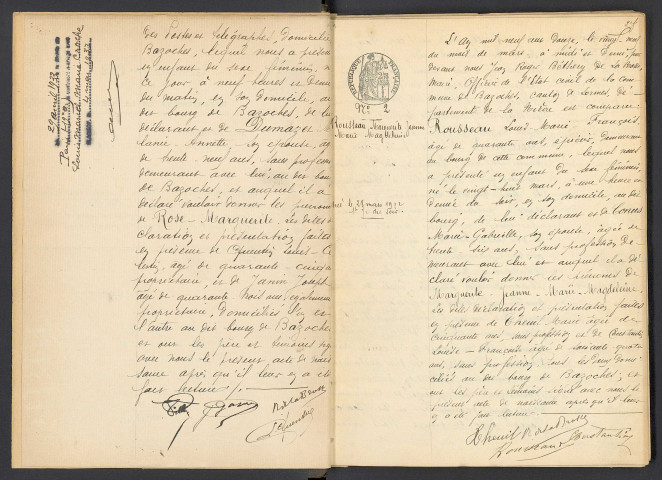 29 avril 1933
Louis
4 mai 1933
des Postes et télégraphes, domicilié
Bazoches, lequel nous a présenté
un enfant du sexe féminin, né
ce jour à neuf heures et demie
du matin, en son domicile, au
dit bourg de Bazoches, de lui
déclarant et de Dumagee
Annette, son épouse, âgée
de trente neuf ans, sans profession
demeurant avec lui, au dit bourg
de Bazoches, et auquel il a
déclaré vouloir donner les prénoms
de Rose-Marguerite. Les dites dé
claration et présentation faites
en présence de Louis
âgé de quarante-cinq ans
propriétaire, et de Janin Joseph
âgé de quarante trois ans, également
propriétaire, domiciliés l'un et
l'autre au dit bourg de Bazoches
et ont les père et témoins signé
avec nous le présent acte de nais
sance après qu'il leur en a été
fait lecture ./.
N° 2
Rousseau Marguerite Jeanne
Marie Magdeleine
le 28 mars 1912
L'an mil neuf cent douze, le vingt neuf
du mois de mars, à midi et demi, par
devant nous Roger Béthery de La Brosse,
Maire, officier de l'état civil de la com
mune de Bazoches, canton de Lormes, dé
partement de la Nièvre, est comparu:
Rousseau Louis Marie François,
âgé de quarante ans, épicier, demeurant
au bourg de cette commune, lequel nous
a présenté un enfant du sexe féminin,
né le vingt-huit mars, à une heure et
demie du soir, en son domicile, au dit
bourg, de lui déclarant et de
Marie-Gabrielle, son épouse, âgée de
trente six ans, sans profession, de
meurant avec lui et auquel il a dé
claré vouloir donner les prénoms de
Marguerite-Jeanne-Marie-Magdeleine.
Les dites déclaration et présentation faites
en présence de Theuil Marie âgée de
cinquante ans, sans profession et de Constantin
Louise-Françoise âgée de soixante quatre
ans, sans profession, tous les deux domi
ciliés au dit bourg de Bazoches; et
ont les père et témoins signé avec nous le
présent acte de naissance après qu'il leur
en a été fait lecture.
Theuil R. de La Brosse
Rousseau Constantin